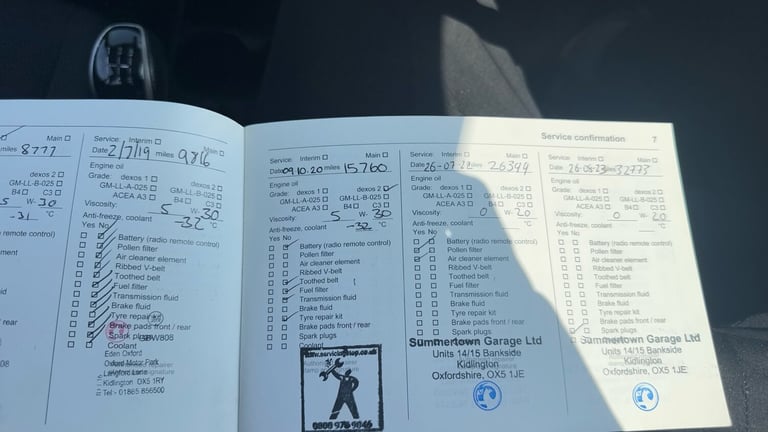 miles 8777
Main
dexos 2
GM-LL-B-025
C3
W- 30
-31
remote control)
element
fluid
/ rear
Service: Interim Main
Date 2/7/19 miles 9816
Engine oil
Grade: dexos 1 dexos 2
GM-LL-A-025 GM-LL-B-025
ACEA A3 B4 C3
Viscosity: 5 W- 30
Anti-freeze, coolant -32 °C
Yes No
Battery (radio remote control)
Pollen filter
Air cleaner element
Ribbed V-belt
Toothed belt
Fuel filter
Transmission fluid
Brake fluid
Tyre repair kit
Brake pads front / rear
Spark plugs
Coolant
Eden Oxford
Oxford Motor Park
Langford Lane
Kidlington OX5 1RY
Tel - 01865 856500
Service confirmation 7
Service: Interim Main
Date 09.10.20 miles 15760
Engine oil
Grade: dexos 1 dexos 2
GM-LL-A-025 GM-LL-B-025
ACEA A3 B4 C3
Viscosity: 5 W- 30
Anti-freeze, coolant -32 °C
Yes No
Battery (radio remote control)
Pollen filter
Air cleaner element
Ribbed V-belt
Toothed belt
Fuel filter
Transmission fluid
Brake fluid
Tyre repair kit
Brake pads front / rear
Spark plugs
Coolant
0800 978 9046
Service: Interim Main
Date 26-07-22 miles 26394
Engine oil
Grade: dexos 1 dexos 2
GM-LL-A-025 GM-LL-B-025
ACEA A3 B4 C3
Viscosity: 0 W- 20
Anti-freeze, coolant °C
Yes No
Battery (radio remote control)
Pollen filter
Air cleaner element
Ribbed V-belt
Toothed belt
Fuel filter
Transmission fluid
Brake fluid
Tyre repair kit
Brake pads front / rear
Spark plugs
Summertown Garage Ltd
Units 14/15 Bankside
Kidlington
Oxfordshire, OX5 1JE
Service: Interim Main
Date miles 32773
Engine oil
Grade: dexos 1 dexos 2
GM-LL-A-025 GM-LL-B-025
ACEA A3 B4 C3
Viscosity: 0 W- 20
Anti-freeze, coolant °C
Yes No
Battery (radio remote control)
Pollen filter
Air cleaner element
Ribbed V-belt
Toothed belt
Fuel filter
Transmission fluid
Brake fluid
Tyre repair kit
Brake pads front / rear
Spark plugs
Summertown Garage Ltd
Units 14/15 Bankside
Kidlington
Oxfordshire, OX5 1JE